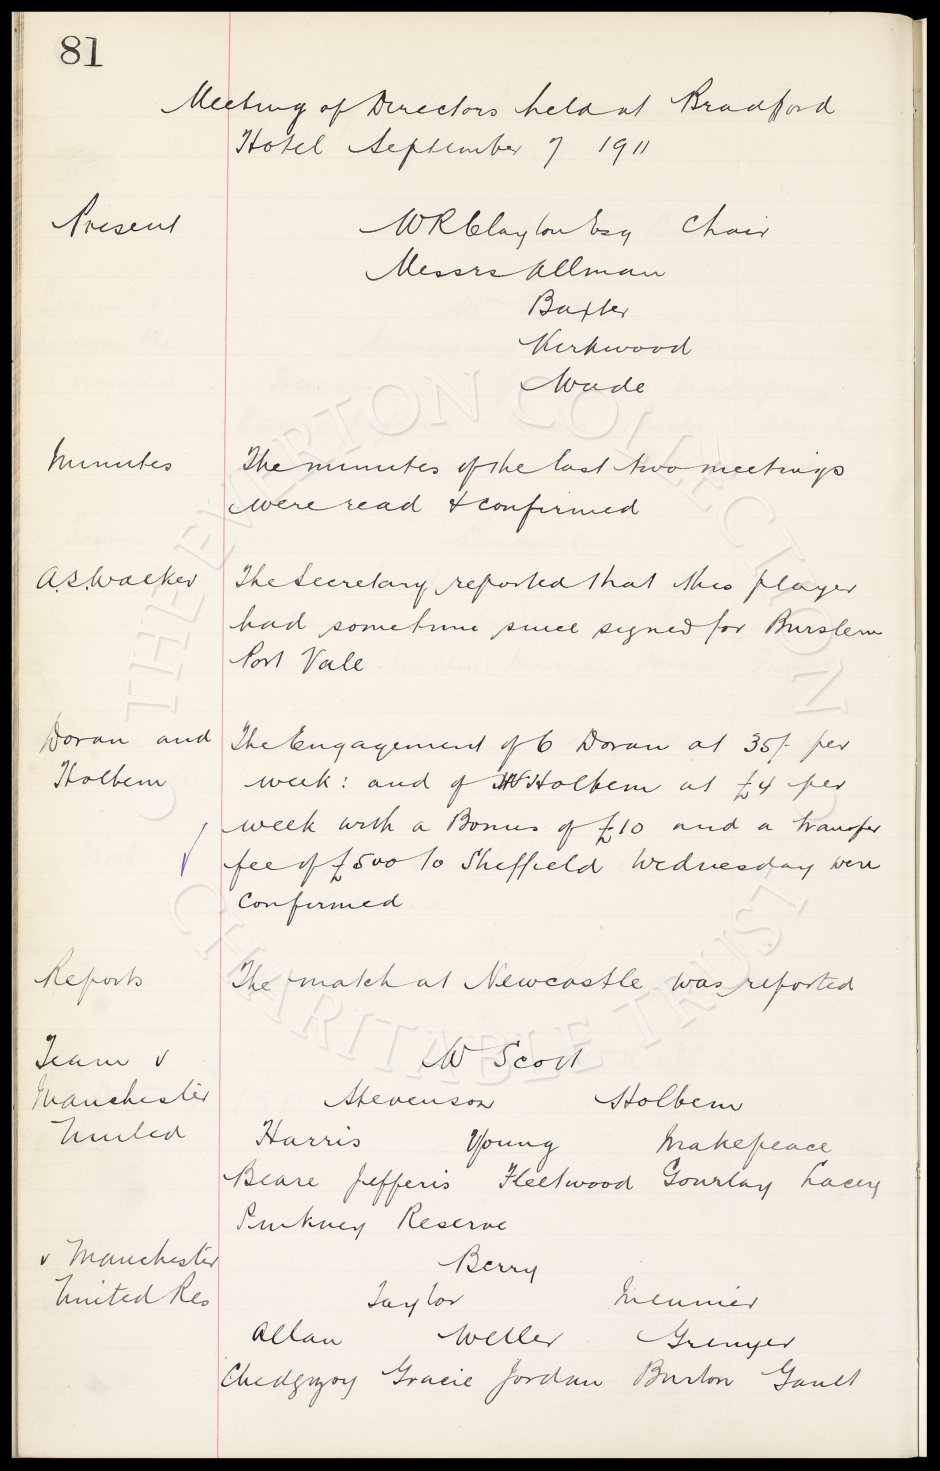 81
Meeting of Directors held at Bradford
Hotel September 7 1911
Present W R Clayton Esq Chair
Messrs Allman
Baxter
Kirkwood
Wade
Minutes The minutes of the last two meetings
were read & confirmed
A.S. Walker The Secretary reported that this player
had sometime since signed for Burslem
Port Vale
Doran and The Engagement of C Doran at 35/- per
Holbem week: and of W Holbem at £4 per
week with a Bonus of £10 and a transfer
fee of £500 to Sheffield Wednesday were
confirmed
Reports The match at Newcastle was reported
Team v W Scott
Manchester Stevenson Holbem
United Harris Young Makepeace
Beare Jefferis Fleetwood Gourlay Lacey
Pinkney Reserve
v Manchester Berry
United Res Taylor Meunier
Allan Weller Grenyer
Chedgzoy Gracie Jordan Burton Gault
© THE EVERTON COLLECTION
CHARITABLE TRUST